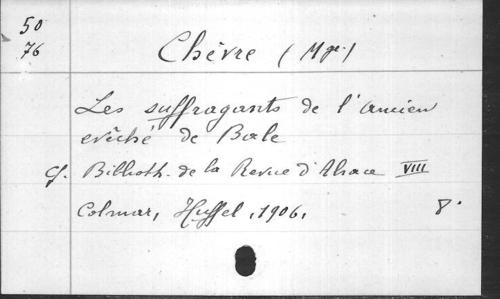 50
76
Chèvre (Mgr.)
Les suffragants de l'ancien
evêché de Bâle
cf. Biblioth. de la Revue d'Alsace VIII
Colmar, Huffel, 1906, 8°